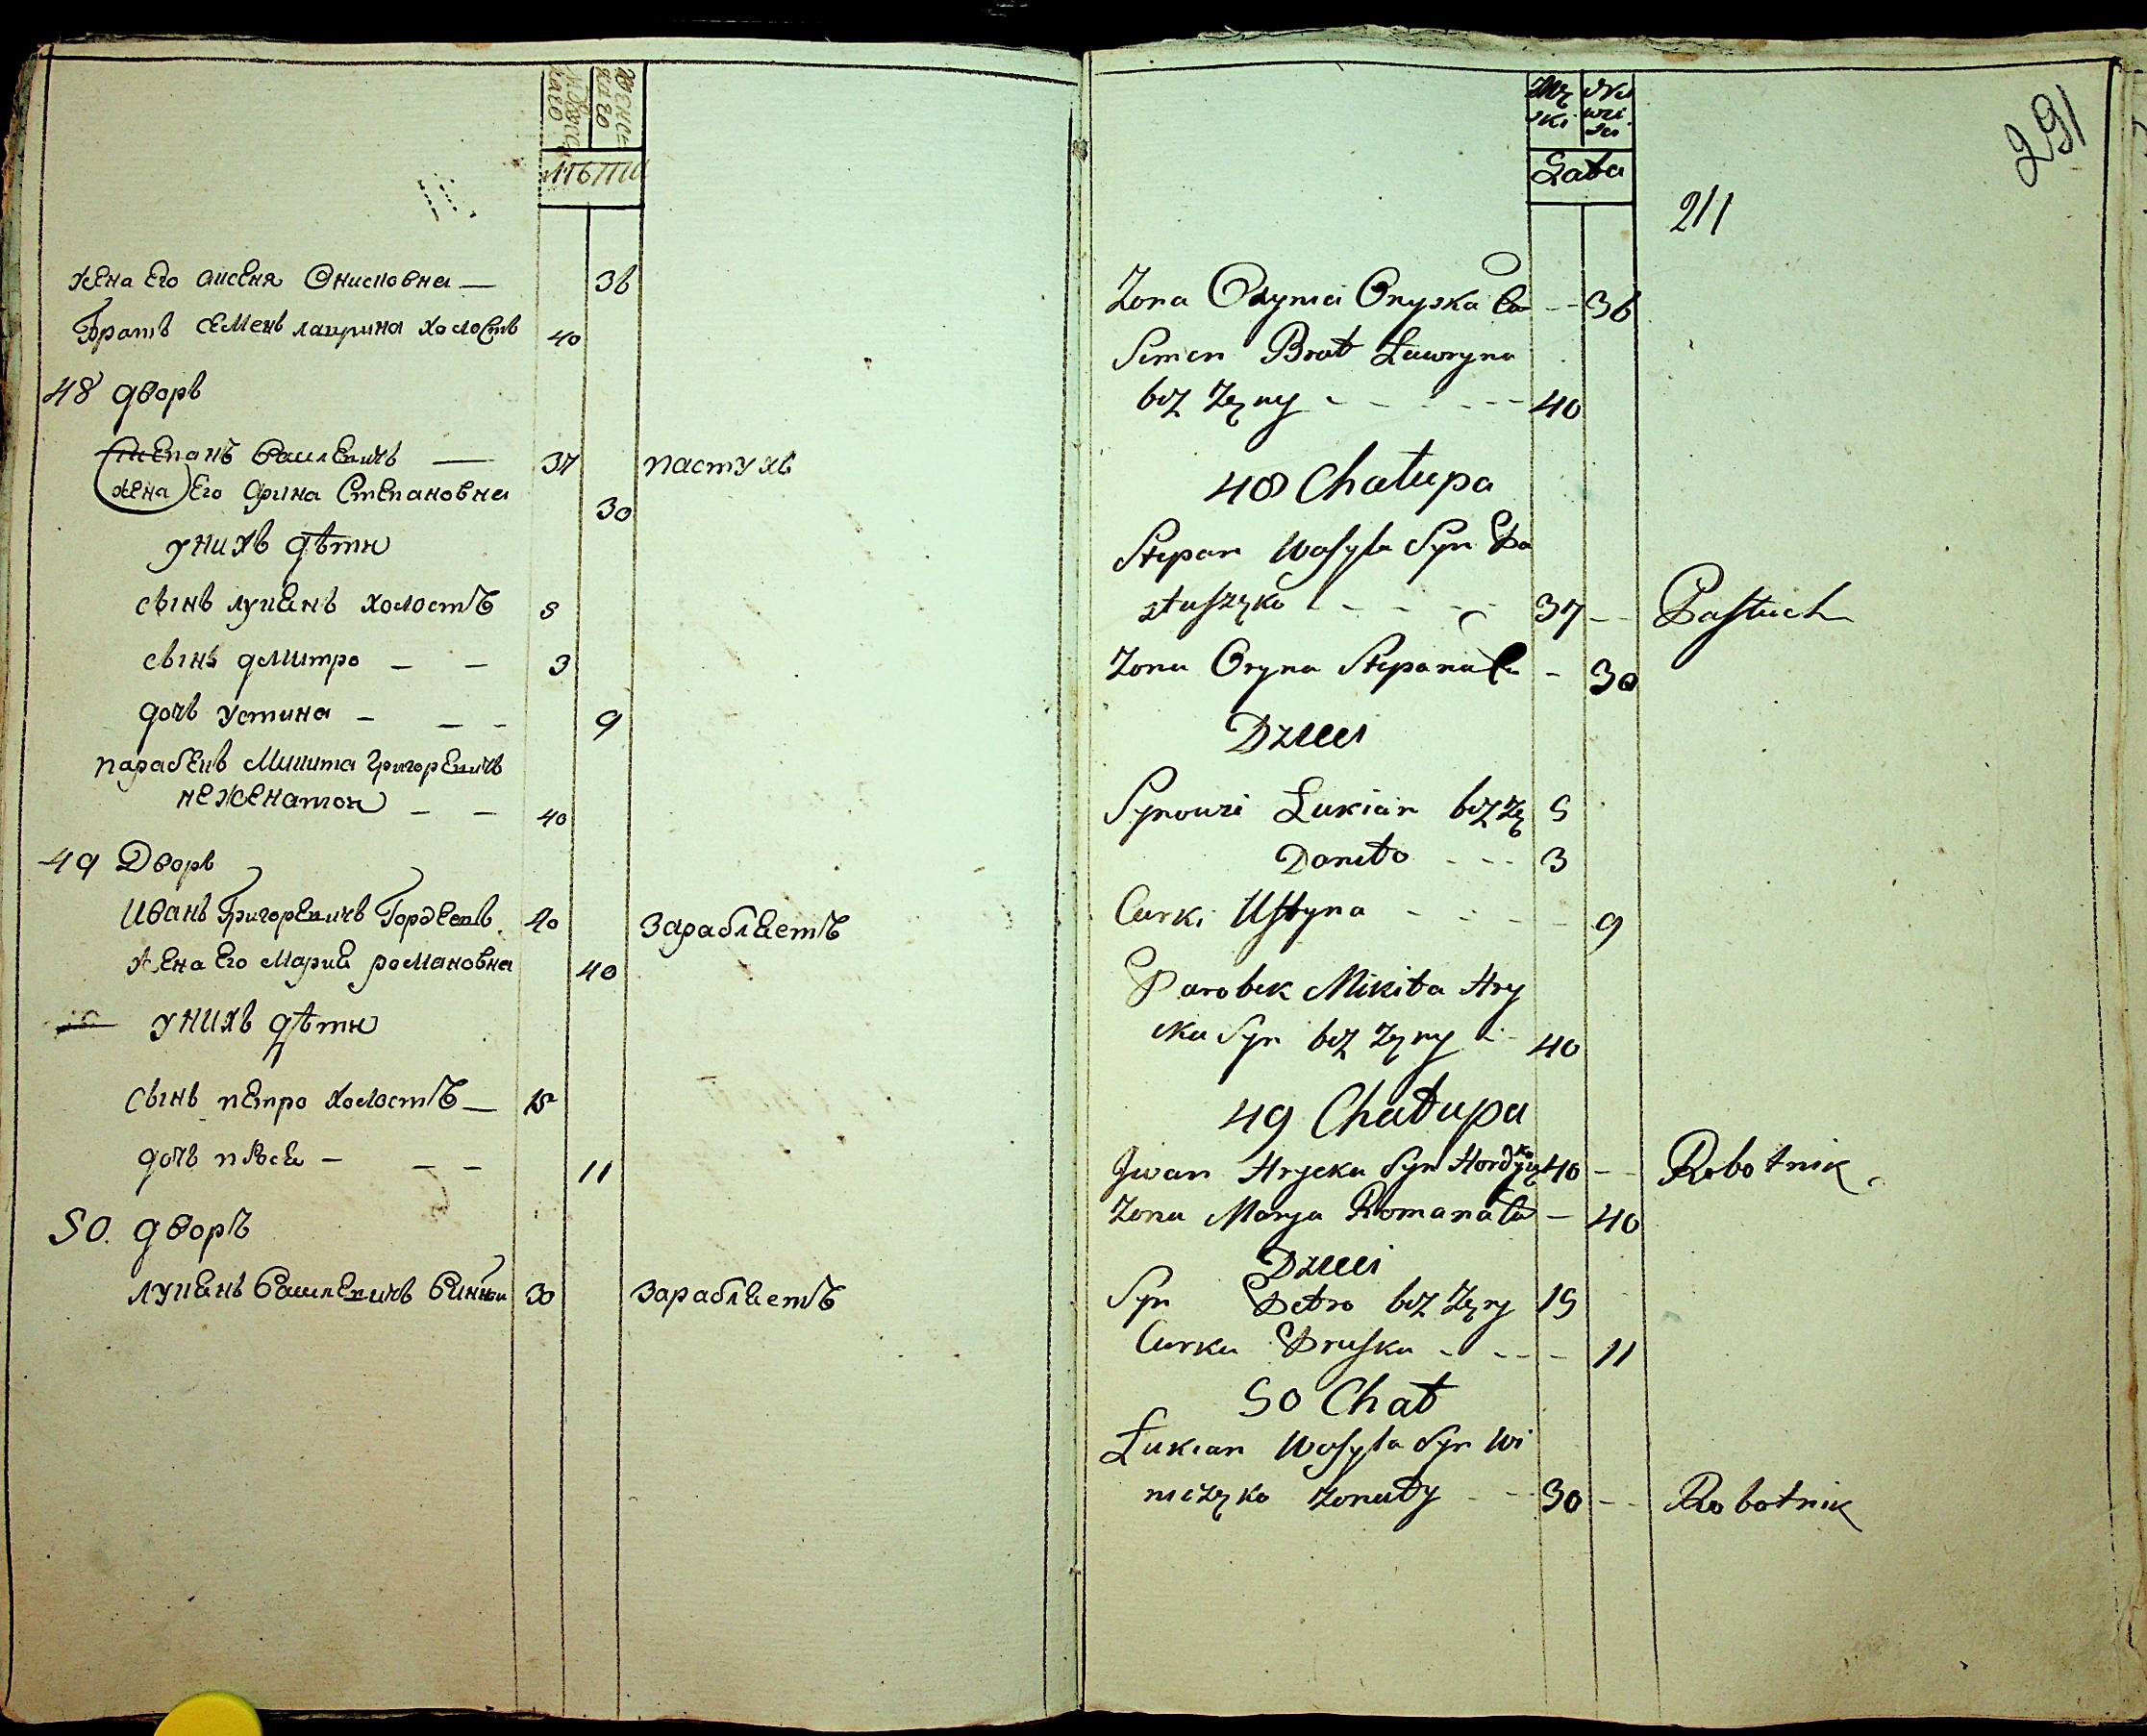 жена Его Аксеня Онисковна — 36
Братъ Семенъ лаврина холостъ 40
48 дворъ
Степанъ Василевичъ — 37 пастухъ
жена Его Орина Степановна 30
у нихъ дѣти
сынъ лукянъ холостъ 5
сынъ дмитро — — 3
дочь устина — — — 9
паробекъ Микита Григоревичъ
нежената — — 40
49 Дворъ
Иванъ Григоревичъ Гордеевъ 40 зарабляетъ
жена Его Мария романовна 40
у нихъ дѣти
сынъ петро холостъ — 15
дочь — — — 11
50. дворъ
лукянъ Василевичъ 30 зарабляетъ
291
Męzki
Lata
211
Zona Oryska Ca — 36
Semen Brat Ławryna
bez Zęny - - - - 40
48 Chałupa
Stepan Wasyla Syn Pa
stuszęko - - - - 37 - - Pastuch
Zona Oryna Stepana Ca - 30
Dzieci
Synowi Łukian bez Zę 5
Daniło - - - 3
Curki Ustyna - - - - 9
Parobek Mikita Hry
cka Syn bez Zęny - 40
49 Chałupa
Iwan Hrycka Syn 40 - - Robotnik
Zona Marya Romana Ca — 40
Dzieci
Syn Petro bez Zęny 15
Curka Pruska - - - - 11
50 Chał
Łukian Wasyla Syn Wi
niczęko zonaty - - 30 - - Robotnik